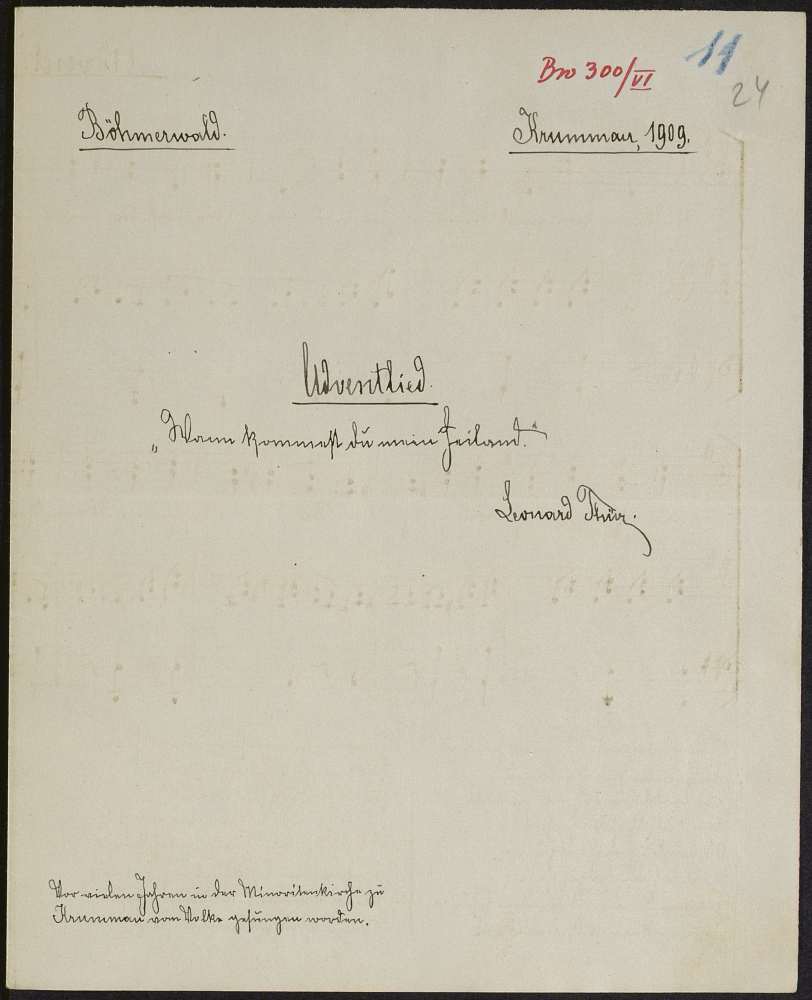 Bro 300/VI
11
24
Böhmerwald.
Krummau, 1909.
Adventlied.
„Wann kommest du mein Heiland."
Leonard
Vor vielen Jahren in der Minoritenkirche zu
Krummau vom Volke gesungen worden.